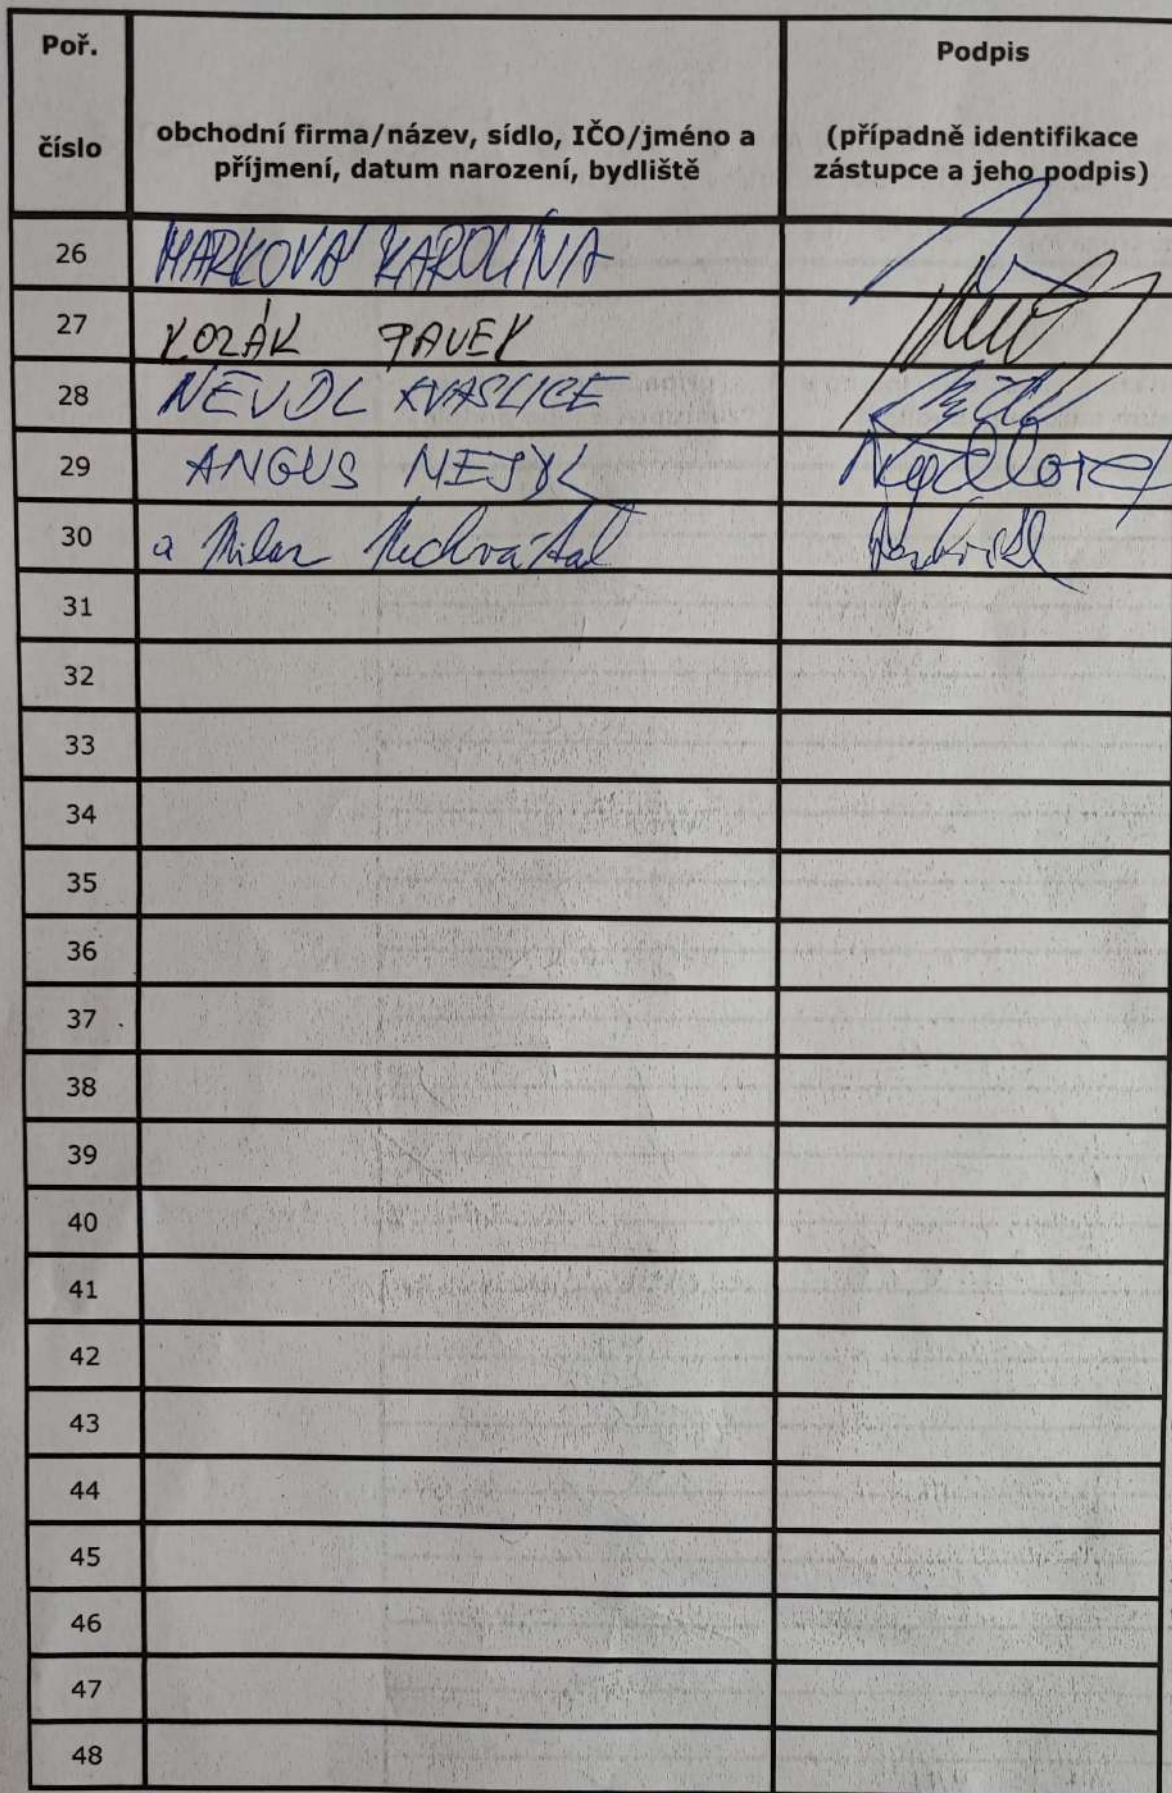 Poř. číslo
obchodní firma/název, sídlo, IČO/jméno a
příjmení, datum narození, bydliště
Podpis
(případně identifikace
zástupce a jeho podpis)
26 MARKOVÁ KAROLÍNA
27 KOZÁK PAVEL
28 NEVDL KVASLICE
29 ANGUS NEJYL
30 a Milan Nechvátal
31
32
33
34
35
36
37
38
39
40
41
42
43
44
45
46
47
48